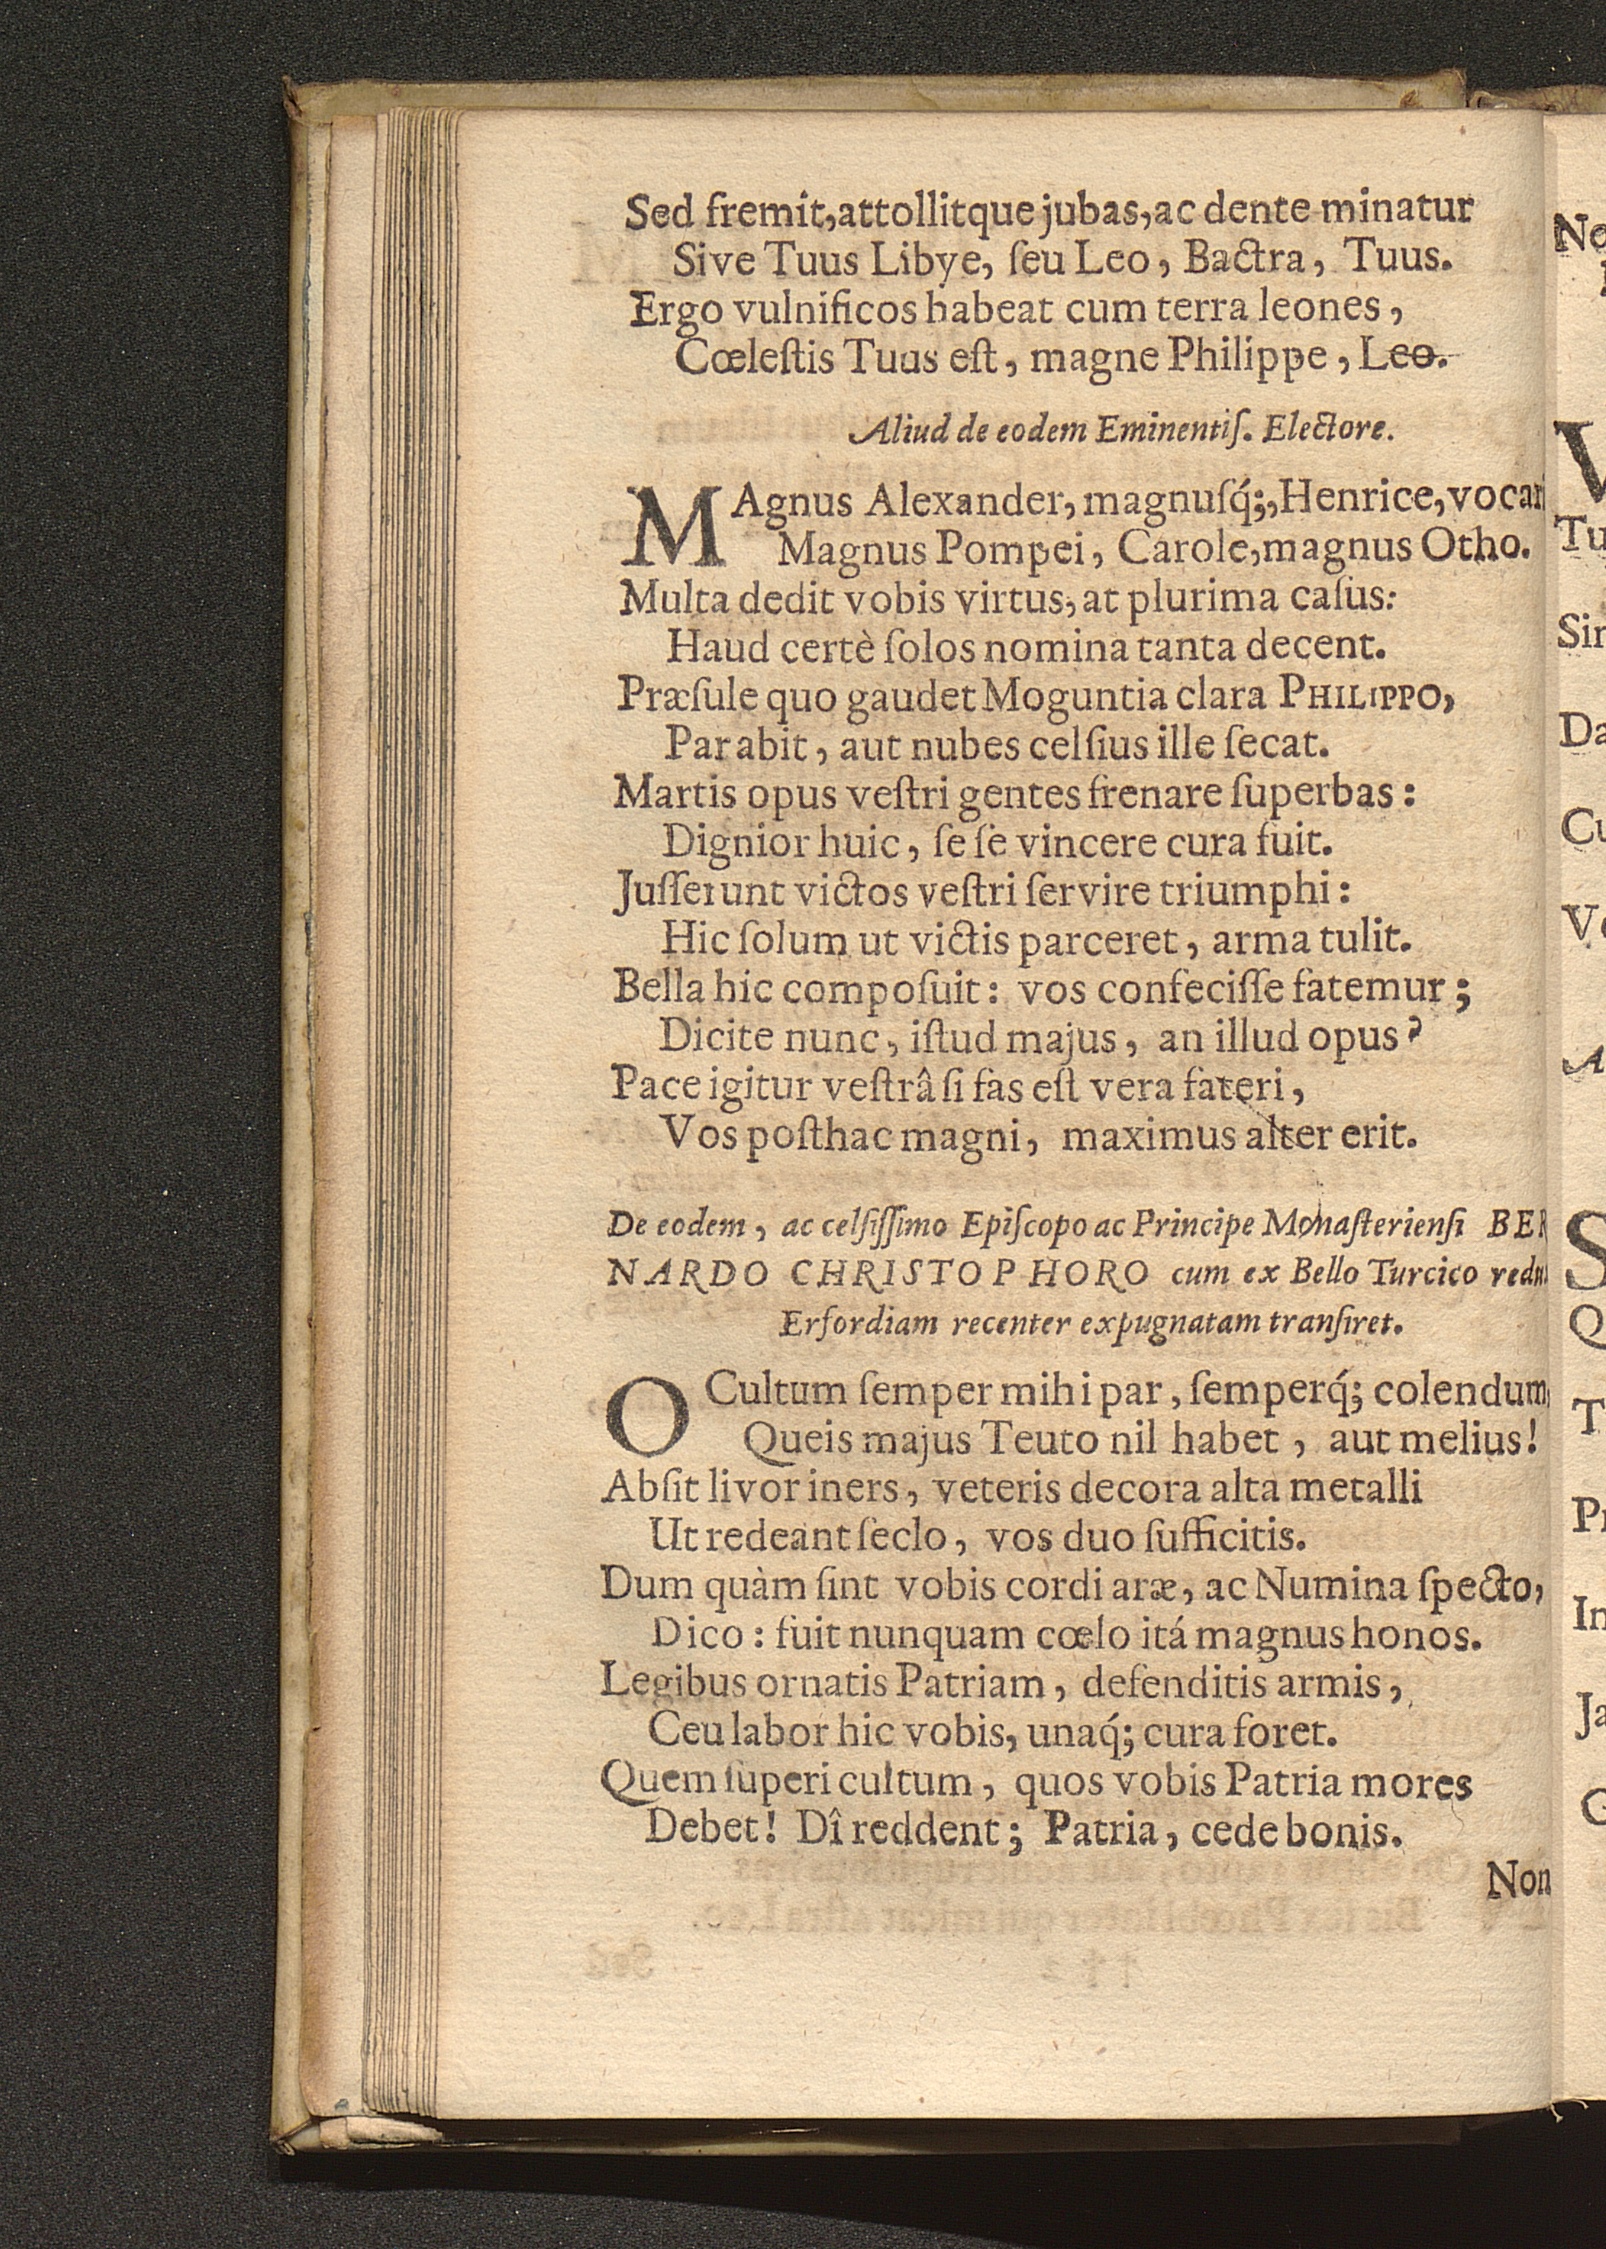 Sed fremit, attollitque jubas, ac dente minatur
Sive Tuus Libye, ſeu Leo, Bactra, Tuus.
Ergo vulnificos habeat cum terra leones,
Cœleſtis Tuus eſt, magne Philippe, Leo.
Aliud de eodem Eminentiſ. Electore.
MAgnus Alexander, magnuſq́;, Henrice, vocar
Magnus Pompei, Carole, magnus Otho.
Multa dedit vobis virtus, at plurima caſus:
Haud certè ſolos nomina tanta decent.
Præſule quo gaudet Moguntia clara PHILIPPO,
Par abit, aut nubes celſius ille ſecat.
Martis opus veſtri gentes frenare ſuperbas:
Dignior huic, ſe ſe vincere cura fuit.
Juſſerunt victos veſtri ſervire triumphi:
Hic ſolum ut victis parceret, arma tulit.
Bella hic compoſuit: vos confeciſſe fatemur;
Dicite nunc, iſtud majus, an illud opus?
Pace igitur veſtrâ ſi fas eſt vera fateri,
Vos poſthac magni, maximus alter erit.
De eodem, ac celſiſſimo Epiſcopo ac Principe Monaſterienſi BER
NARDO CHRISTOPHORO cum ex Bello Turcico redu
Erfordiam recenter expugnatam tranſiret.
O Cultum ſemper mihi par, ſemperq́; colendum,
Queis majus Teuto nil habet, aut melius!
Abſit livor iners, veteris decora alta metalli
Ut redeant ſeclo, vos duo ſufficitis.
Dum quàm ſint vobis cordi aræ, ac Numina ſpecto,
Dico: fuit nunquam cœlo itá magnus honos.
Legibus ornatis Patriam, defenditis armis,
Ceu labor hic vobis, unaq́; cura foret.
Quem ſuperi cultum, quos vobis Patria mores
Debet! Dî reddent; Patria, cede bonis.
Non